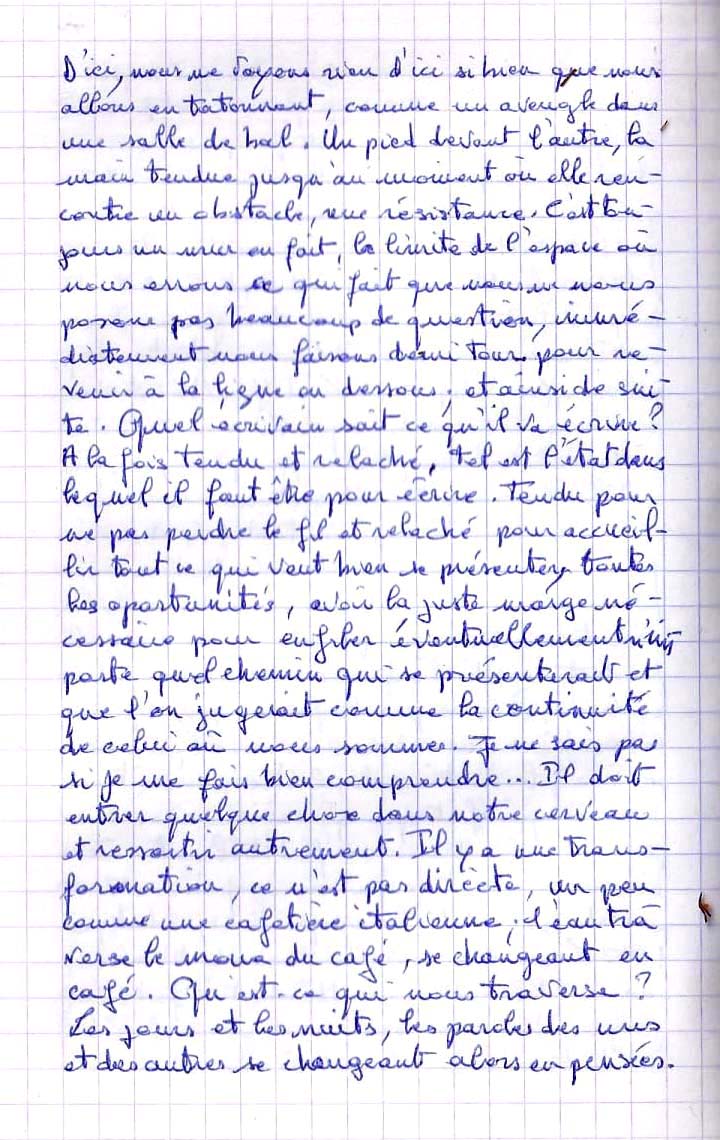 D'ici, nous ne voyons rien d'ici si bien que nous
allons en tatonnant, comme un aveugle dans
une salle de bal. Un pied devant l'autre, la
main tendue jusqu'au moment où elle ren-
contre un obstacle, une résistance. C'est tou-
jours un mur en fait, la limite de l'espace où
nous errons ce qui fait que nous ne nous
posons pas beaucoup de question, immé-
diatement nous faisons demi tour pour re-
venir à la ligne en dessous, et ainsi de sui-
te. Quel écrivain sait ce qu'il va écrire?
A la fois tendu et relaché, tel est l'état dans
lequel il faut être pour écrire. Tendu pour
ne pas perdre le fil et relaché pour accueil-
lir tout ce qui veut bien se présenter, toutes
les oportunités, avoir la juste marge né-
cessaire pour enfiler éventuellement n'im-
porte quel chemin qui se présenterait et
que l'on jugerait comme la continuité
de celui où nous sommes. Je ne sais pas
si je me fais bien comprendre... Il doit
entrer quelque chose dans notre cerveau
et ressortir autrement. Il y a une trans-
formation, ce n'est pas directe, un peu
comme une cafetière italienne; l'eau tra
verse le moua du café, se changeant en
café. Qu'est-ce qui nous traverse?
Les jours et les nuits, les paroles des uns
et des autres se changeant alors en pensées.